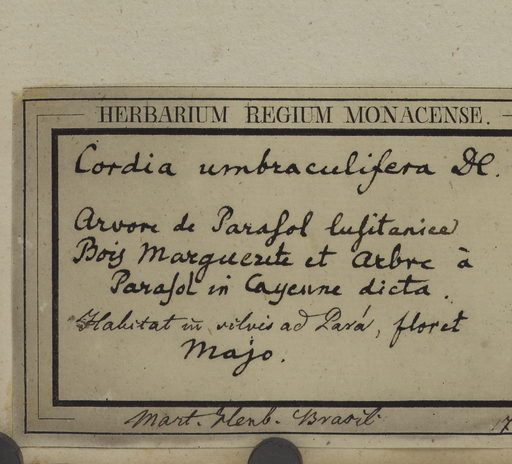 HERBARIUM REGIUM MONACENSE.
Cordia umbraculifera DC.
Arvore de Paraſol luſitanice
Bois Marguerite et Arbre à
Paraſol in Cayenne dicta.
Habitat in silvis ad Pará, floret
Majo.
Mart. Herb. Brasil.